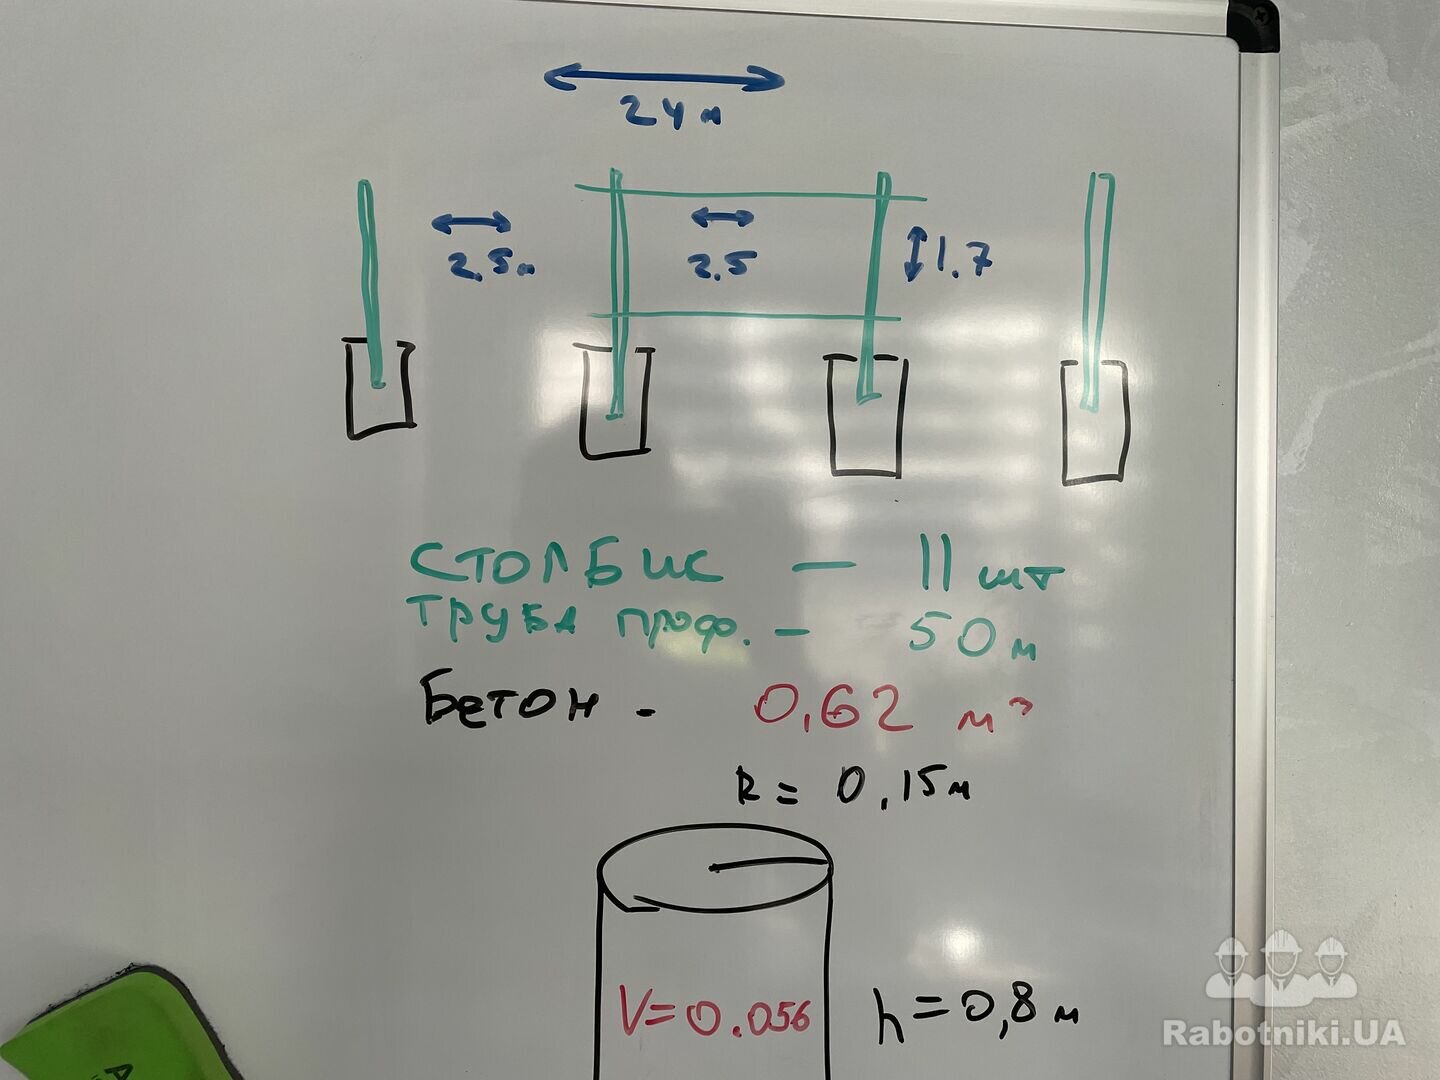 24 м
2.5м
2.5
1.7
СТОЛБИК — 11 шт
ТРУБА проф. — 50 м
БЕТОН - 0,62 м³
R = 0,15м
V=0.056
h=0,8 м
Rabotniki.UA